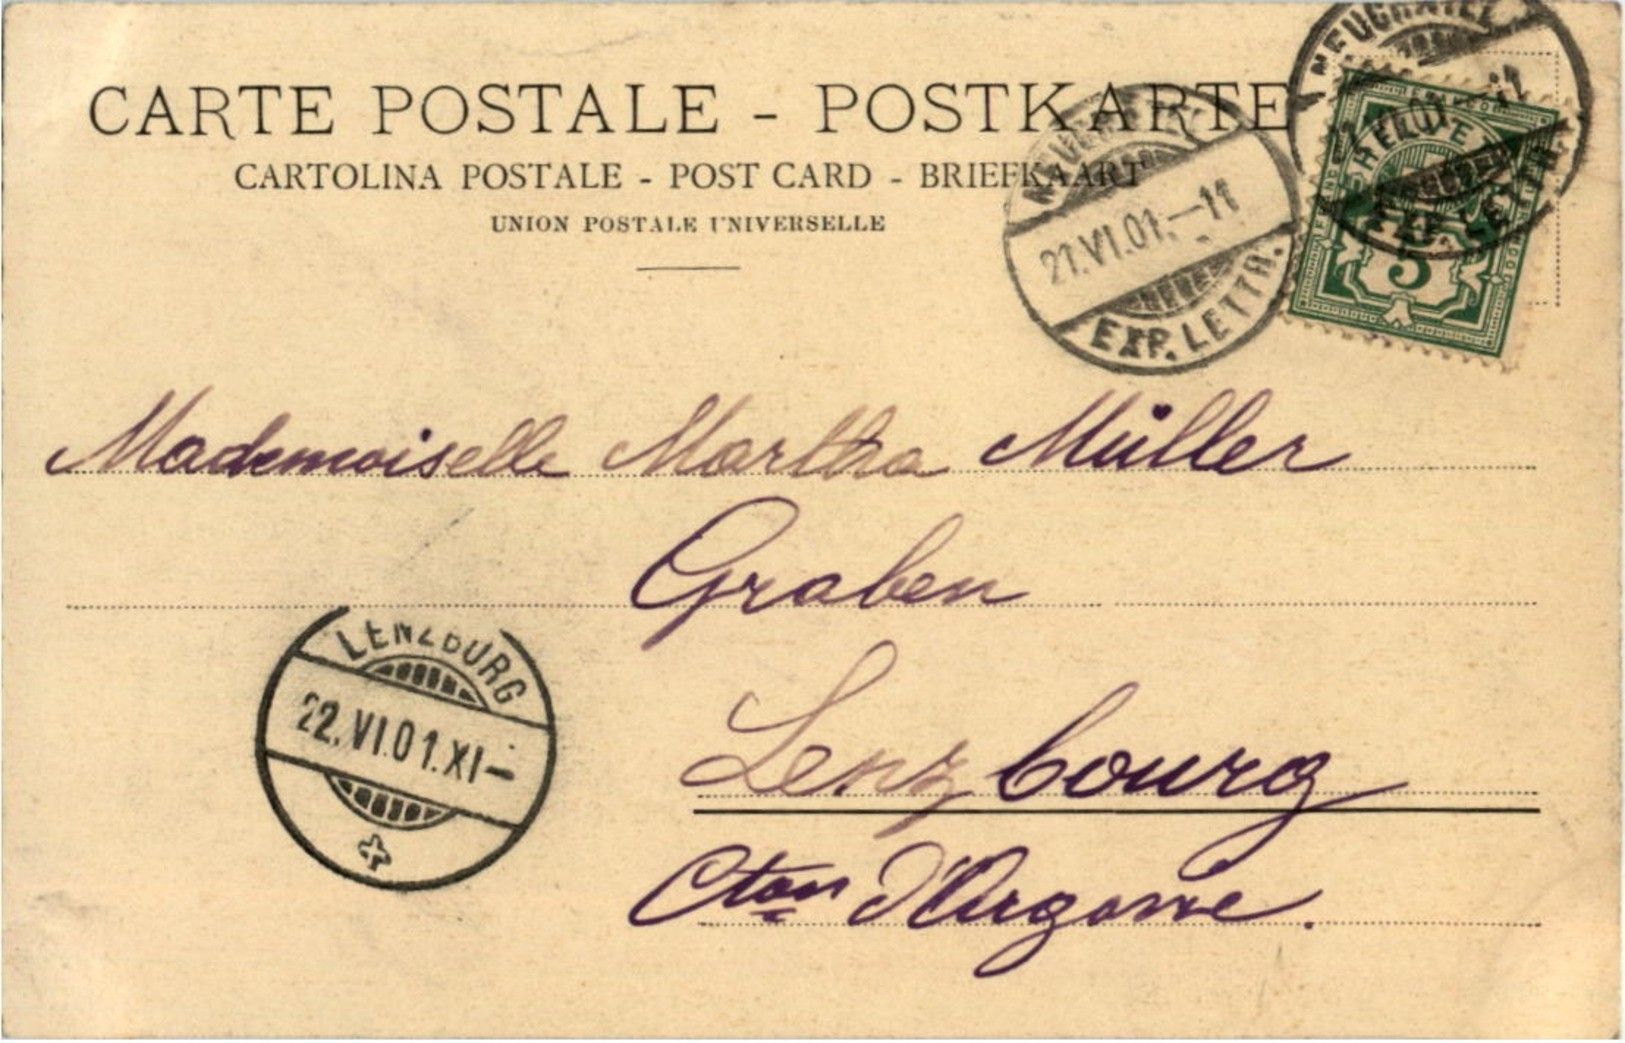 CARTE POSTALE - POSTKARTE
CARTOLINA POSTALE - POST CARD - BRIEFKAART
UNION POSTALE UNIVERSELLE
NEUCHATEL
21.VI.01.—11
EXP. LETTR.
NEUCHATEL
EXP. LETTR.
HELVETIA
5
Mademoiselle Martha Müller
Graben
Lenzbourg
Cton d'Argovie.
LENZBURG
22.VI.01.XI—